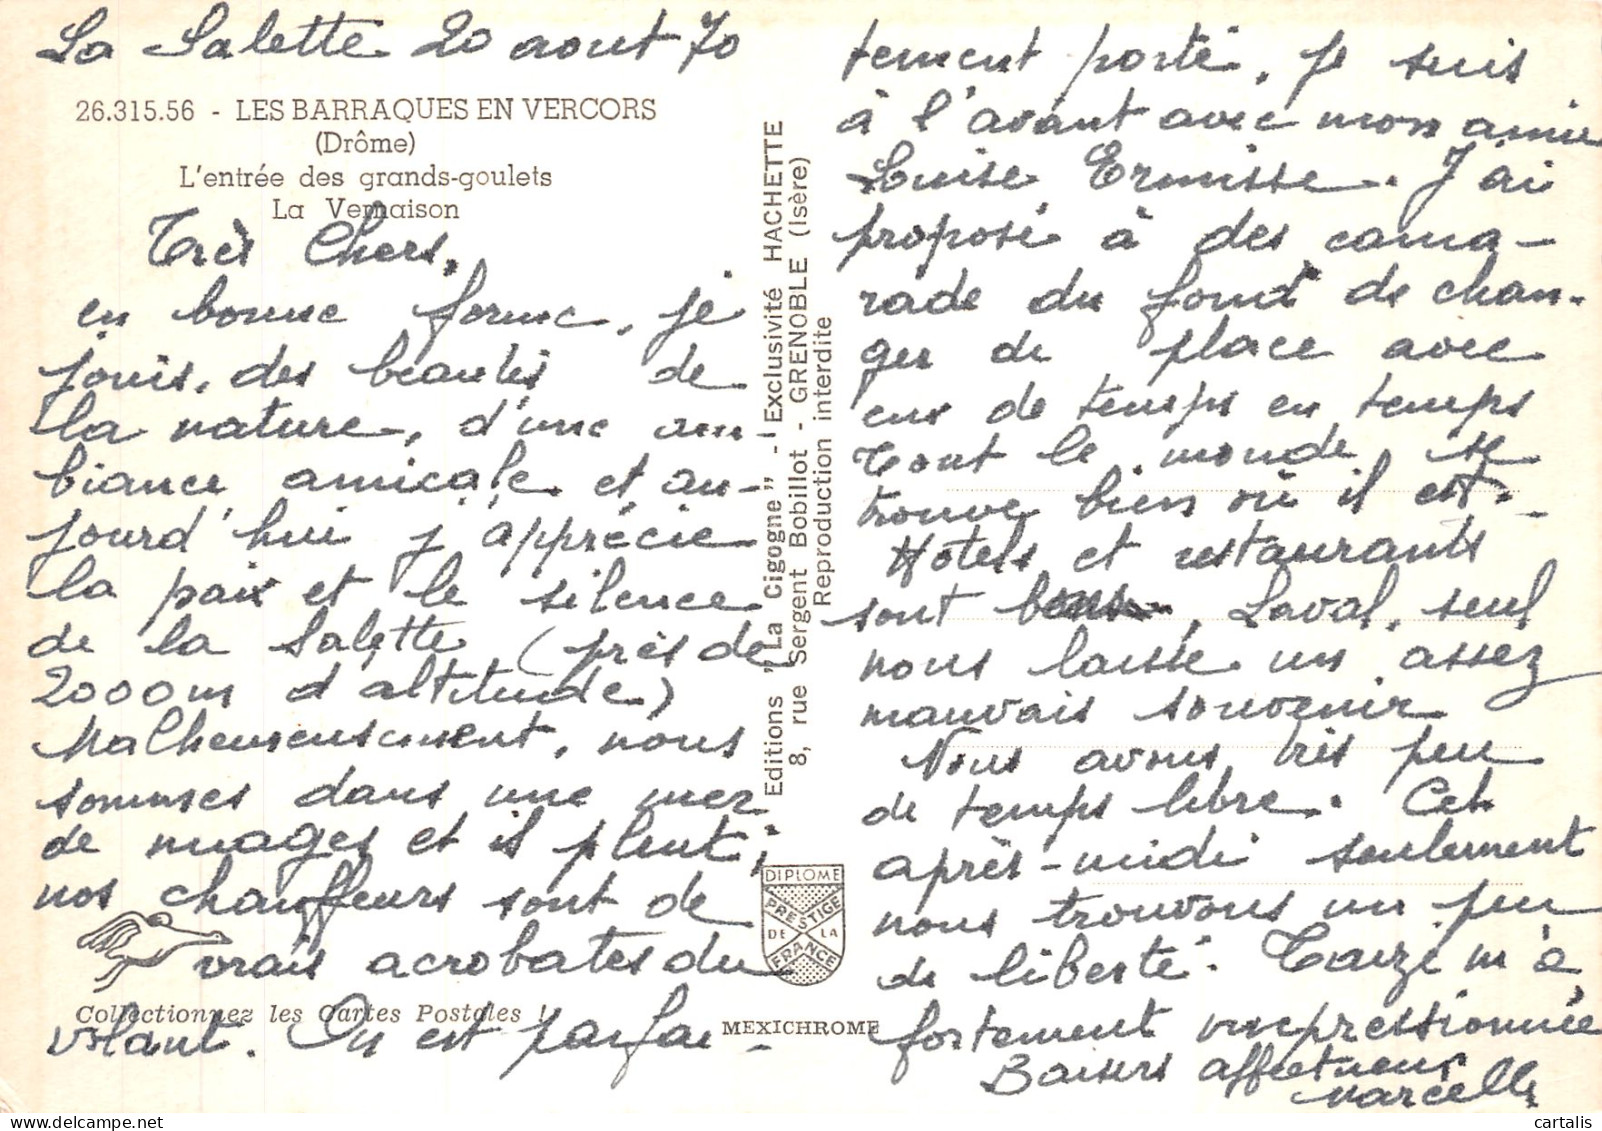 La Salette 20 aout 70
26.315.56 - LES BARRAQUES EN VERCORS
(Drôme)
L'entrée des grands-goulets
La Vernaison
Très Chers,
en bonne forme, je
jouis, des beautés de
la nature, d'une am-
biance amicale et au-
jourd'hui j'apprécie
la paix et le silence
de la Salette (près de
2000m d'altitude)
Malheureusement, nous
sommes dans une mer
de nuages et il pleut ;
nos chauffeurs sont de
vrais acrobates du
volant. On est parfai-
Collectionnez les Cartes Postales !
Editions "La Cigogne" - Exclusivité HACHETTE
8, rue Sergent Bobillot - GRENOBLE (Isère)
Reproduction interdite
DIPLOME
PRESTIGE
DE LA
FRANCE
MEXICHROME
tement porté. Je suis
à l'avant avec mon amie
Luise Ermisse. J'ai
proposé à des cama-
rade du fond de chan-
ger de place avec
eux de temps en temps
Tout le monde se
trouve bien où il est.
Hotels et restaurants
sont bons, Laval, seul
nous laisse un assez
mauvais souvenir
Nous avons très peu
de temps libre. Cet
après-midi seulement
nous trouvons un peu
de liberté. Tarzé m'a
fortement impressionnée
Baisers affectueux
Marcelle